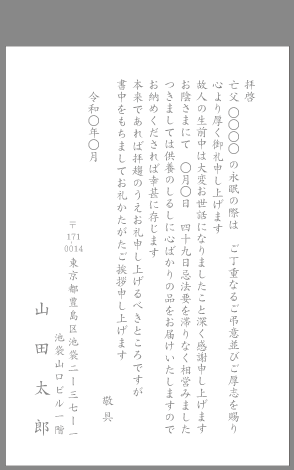 拝啓
亡父 〇〇〇〇 の永眠の際は ご丁重なるご弔意並びご厚志を賜り
心より厚く御礼申し上げます
故人の生前中は大変お世話になりましたこと深く感謝申し上げます
お陰さまにて 〇月〇日 四十九日忌法要を滞りなく相営みました
つきましては供養のしるしに心ばかりの品をお届けいたしますので
お納めくだされば幸甚に存じます
本来であれば拝趨のうえお礼申し上げるべきところですが
書中をもちましてお礼かたがたご挨拶申し上げます
敬具
令和〇年〇月
〒171 0014 東京都豊島区池袋二ー三七ー一
池袋山口ビル一階
山田太郎